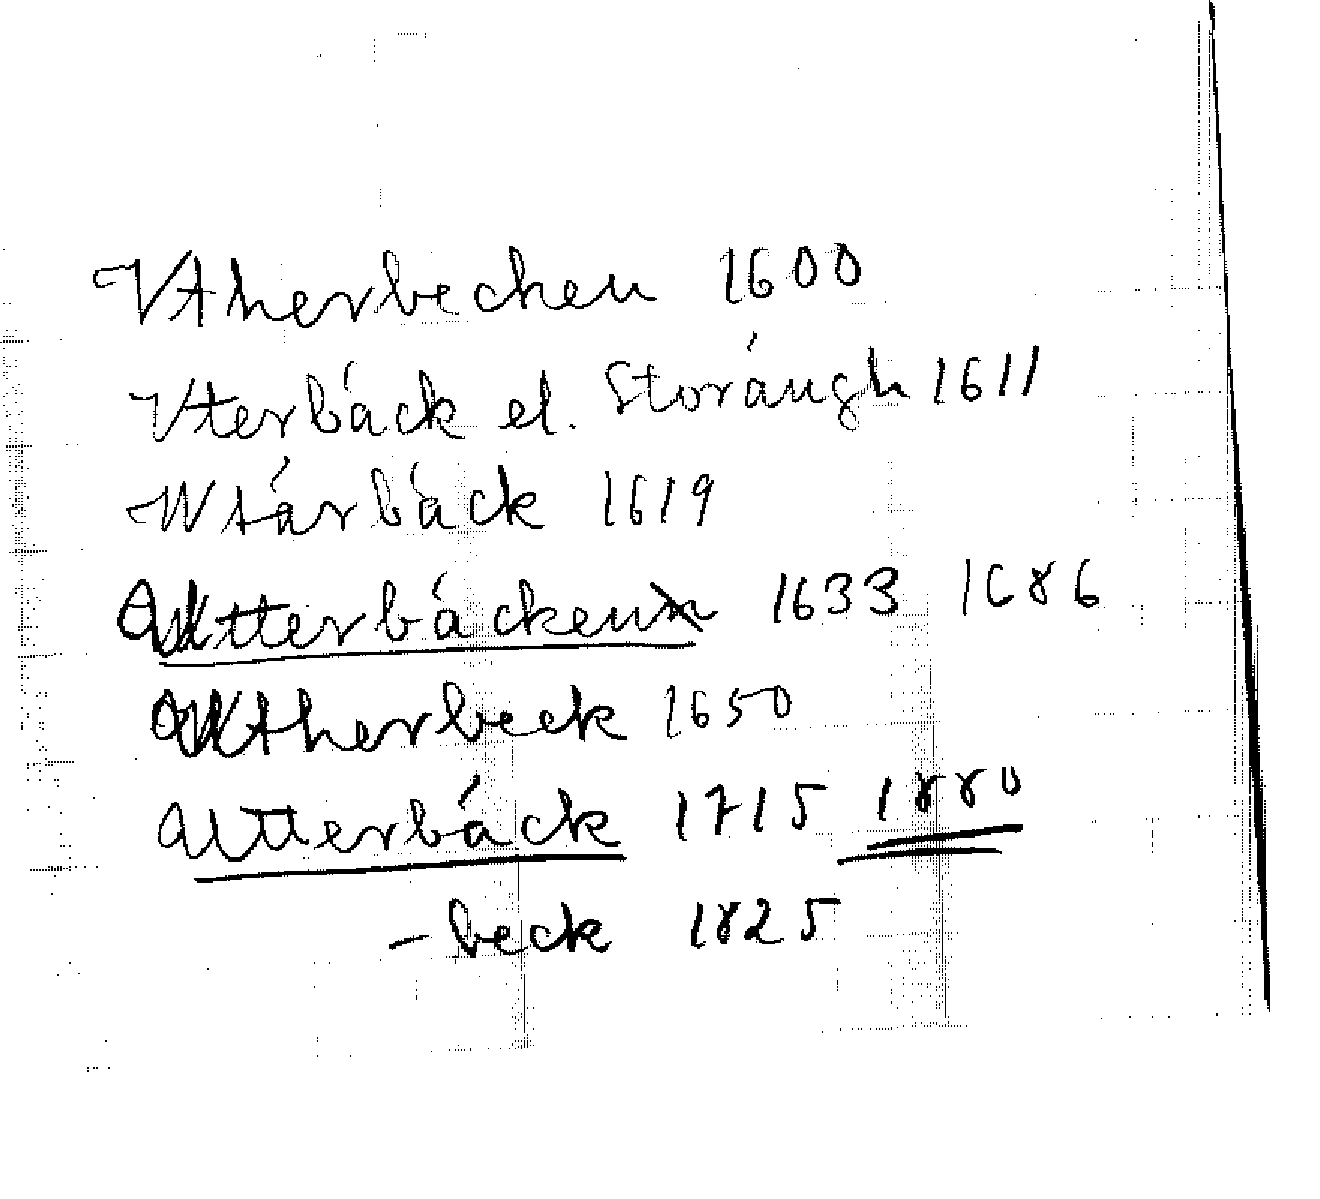 Vtherbechen 1600
Vterbáck el. Storáugh 1611
Wtárbáck 1619
Utterbácken 1633 1686
Utherbeck 1650
Utterbáck 1715 1880
-beck 1825